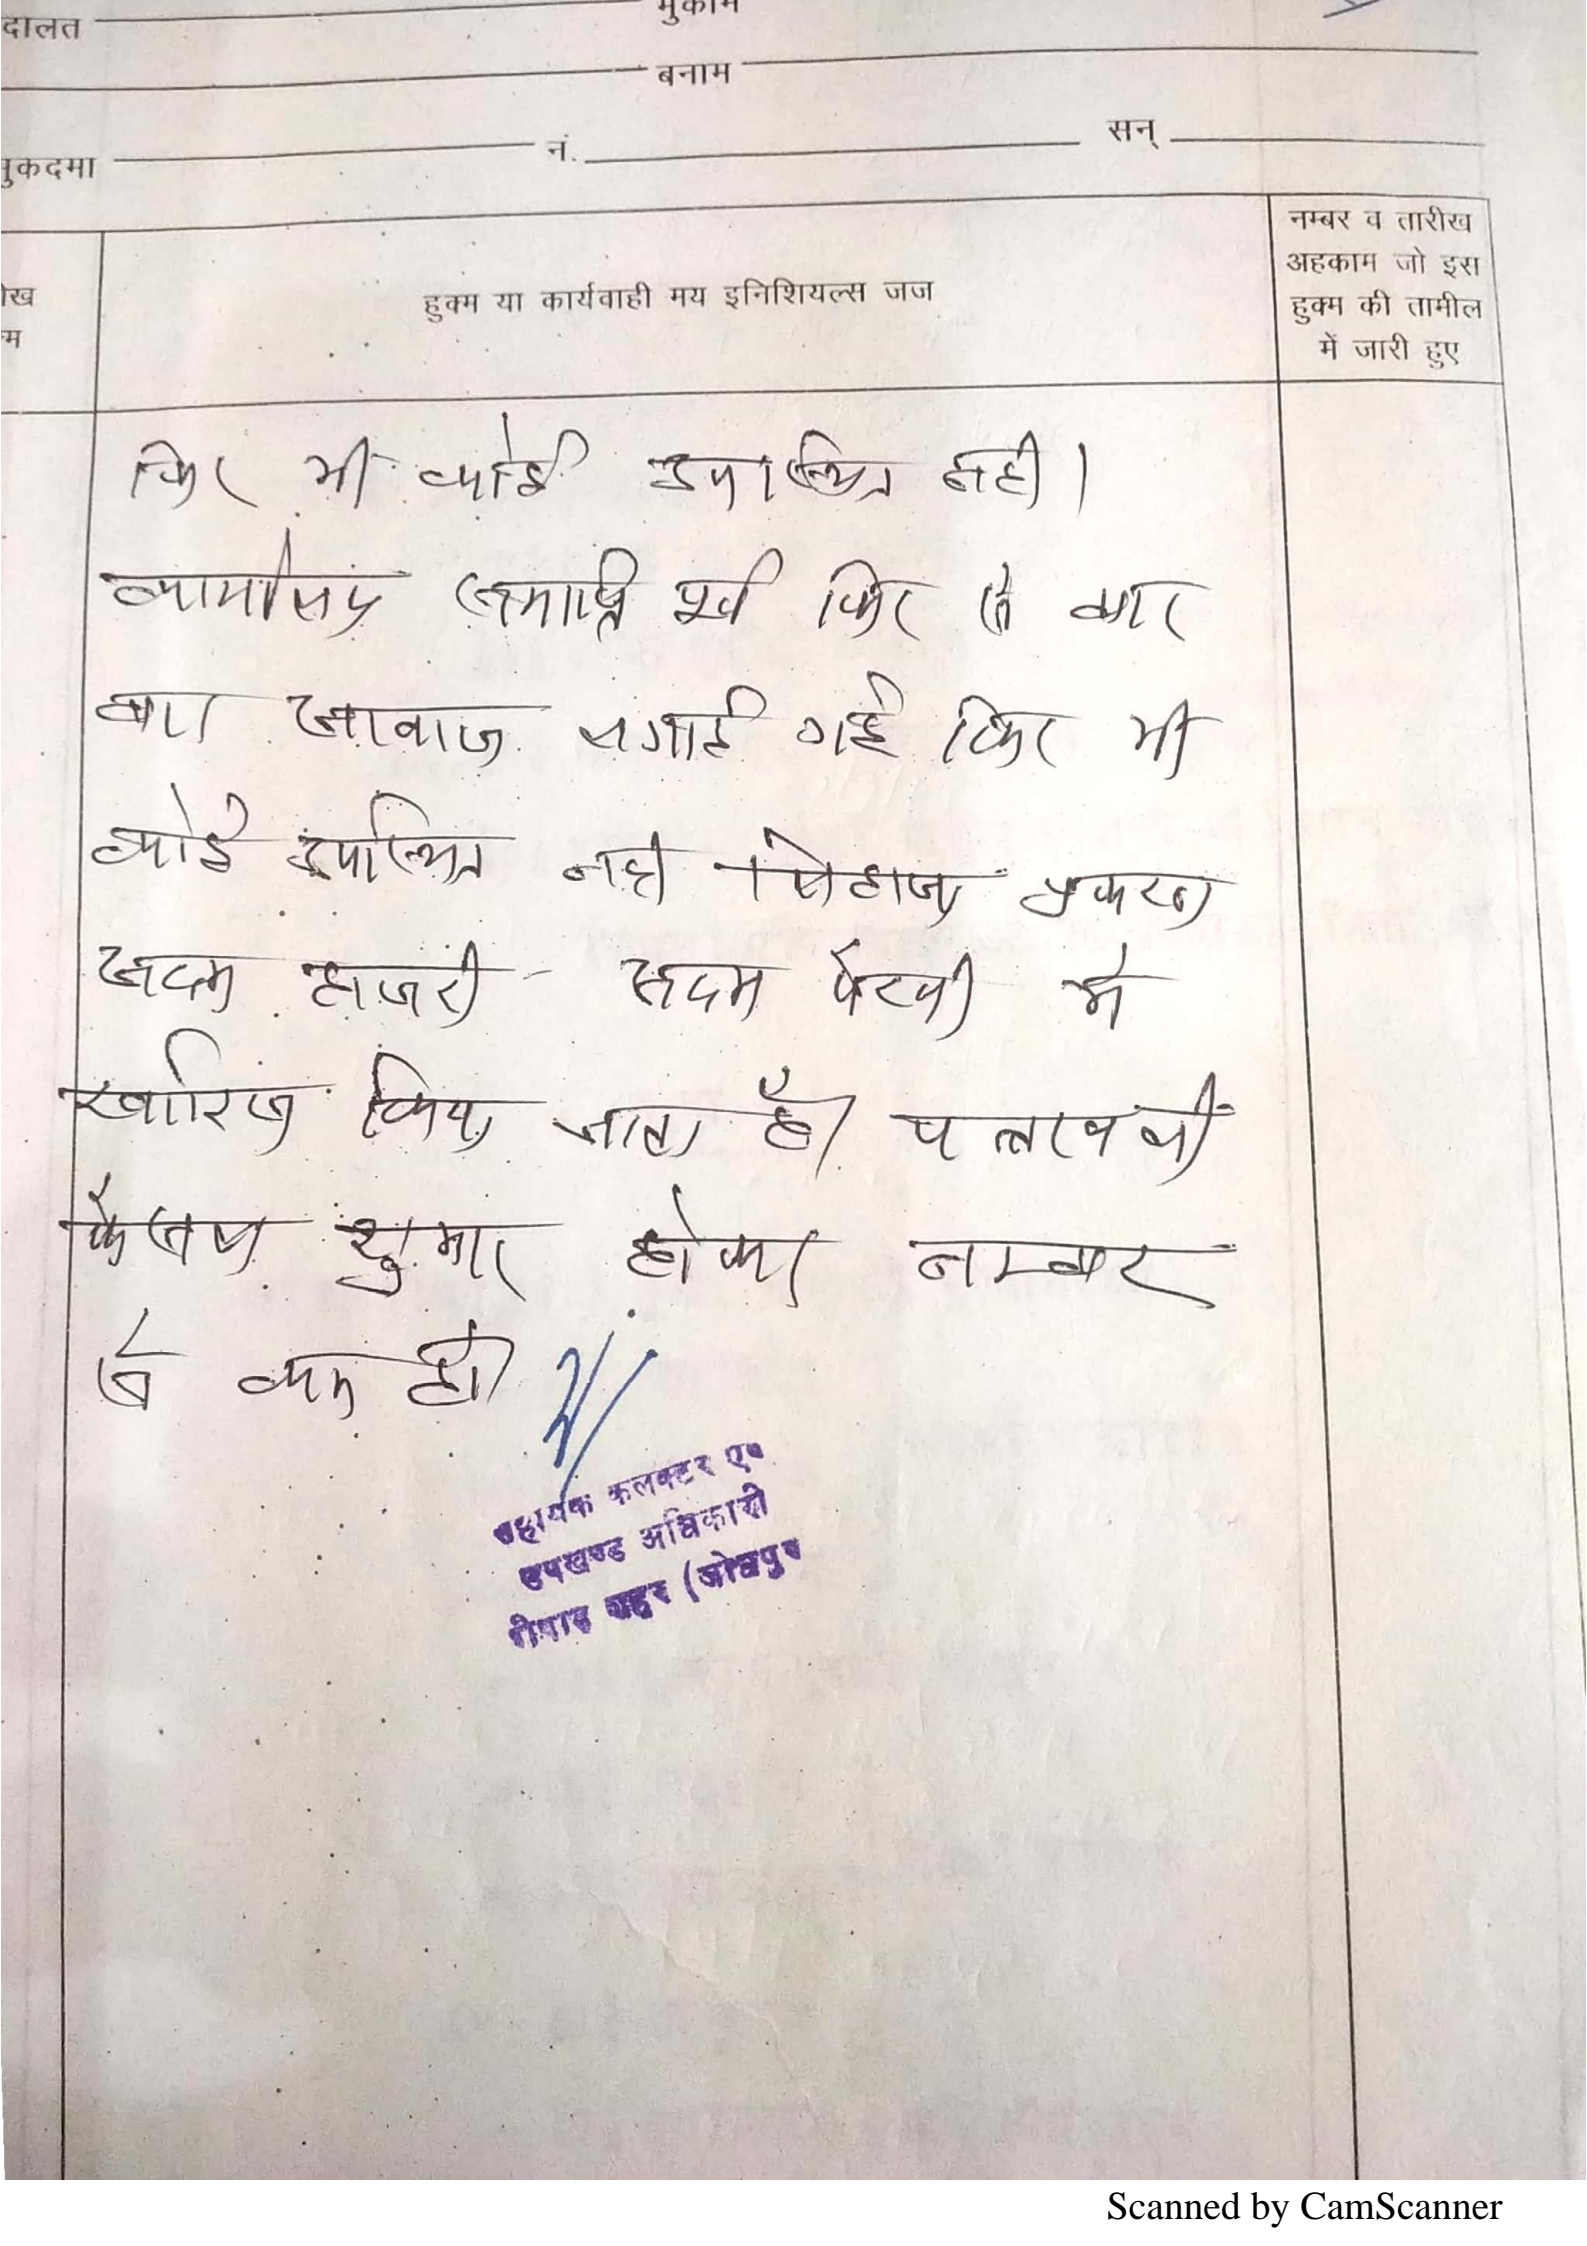 दालत मुकाम
बनाम
मुकदमा नं. सन्
नम्बर व तारीख
अहकाम जो इस
हुक्म की तामील
में जारी हुए
ीख
्म
हुक्म या कार्यवाही मय इनिशियल्स जज
फिर भी कोई उपस्थित नही।
समाप्ति पूर्व फिर से बार
बार आवाज लगाई गई फिर भी
कोई उपस्थित नही लिहाजा प्रकरण
अदम हाजरी - अदम पैरवी मे
खारिज किया जाता है। पत्रावली
फैसल शुमार होकर नम्बर
से कम हो।
सहायक कलक्टर एव
उपखण्ड अधिकारी
पीपाड शहर (जोधपुर
Scanned by CamScanner